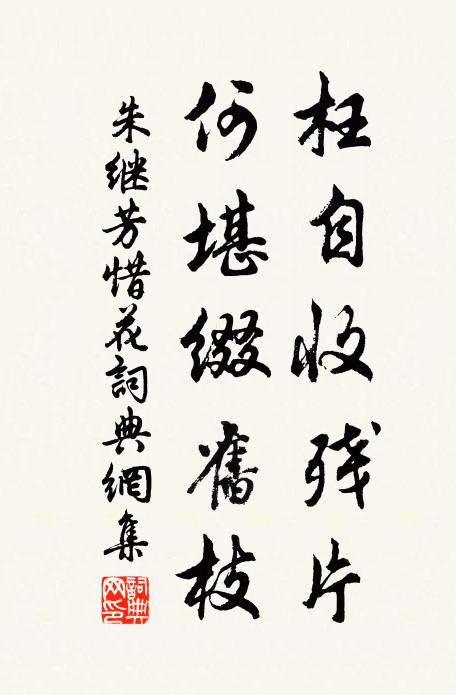 枉自收残片
何堪缀舊枝
朱继芳惜花詞典網集
詞典网印